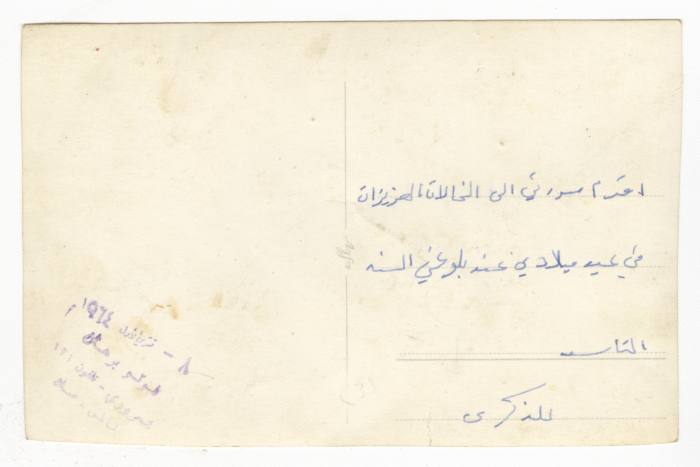 اقدم صورتي الى الخالات العزيزات
في عيد ميلادي عند بلوغي السنه
التاسعه
للذكرى
٨ - تشرين اول ١٩٦٤
فوتو برهان